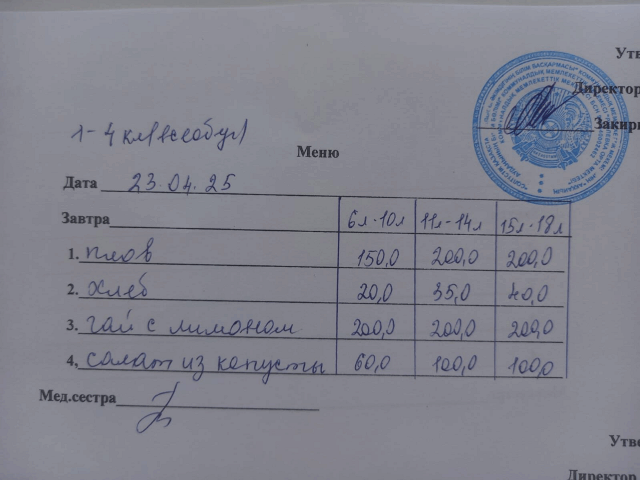 Утв
Директор
Закир
1-4 кл (всеобуч)
Меню
Дата 23.04.25
Завтра 6л-10л 11л-14л 15л-18л
1. плов 150,0 200,0 200,0
2. хлеб 20,0 35,0 40,0
3. чай с лимоном 200,0 200,0 200,0
4, салат из капусты 60,0 100,0 100,0
Мед.сестра
Утве
Директор